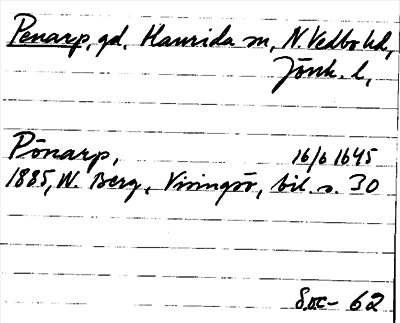 Penarp, gd, Haurida sn, N. Vedbo hd,
Jönk. l,
Pönarp, 16/6 1645
1885, W. Berg, Visingsö, bil. s. 30
Soc- 62